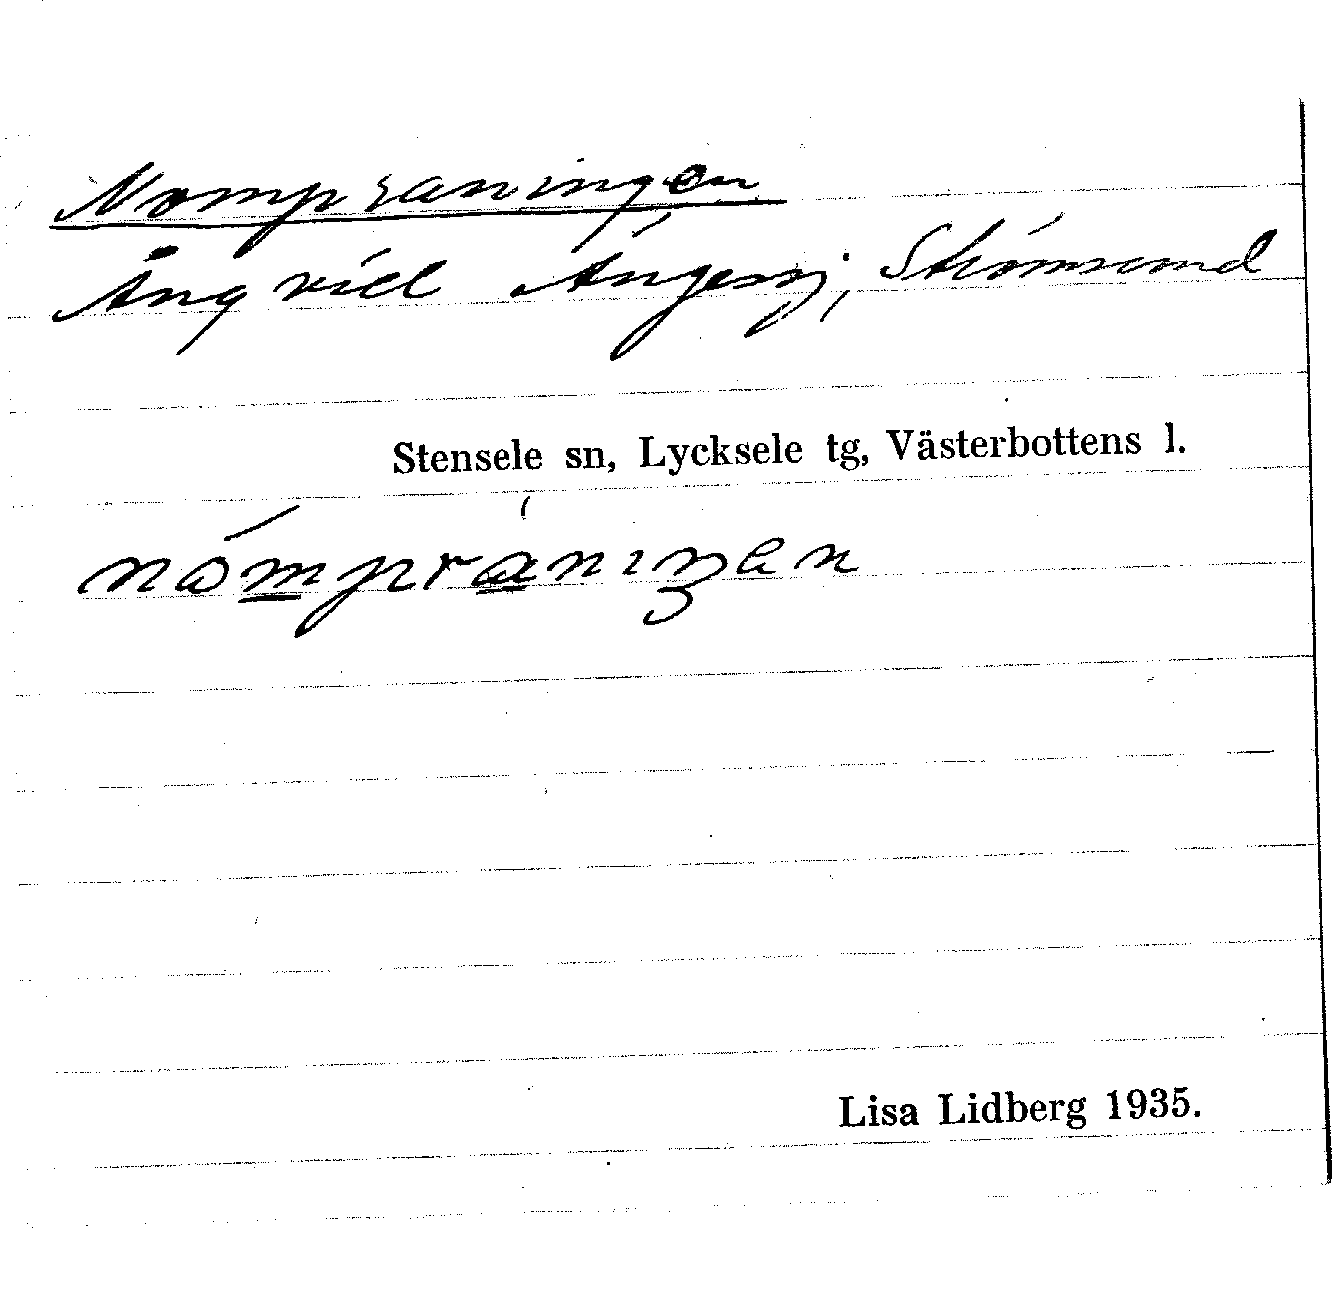 Nompraningen
Äng vid Ångessj, Strömsund
Stensele sn, Lycksele tg, Västerbottens l.
Lisa Lidberg 1935.